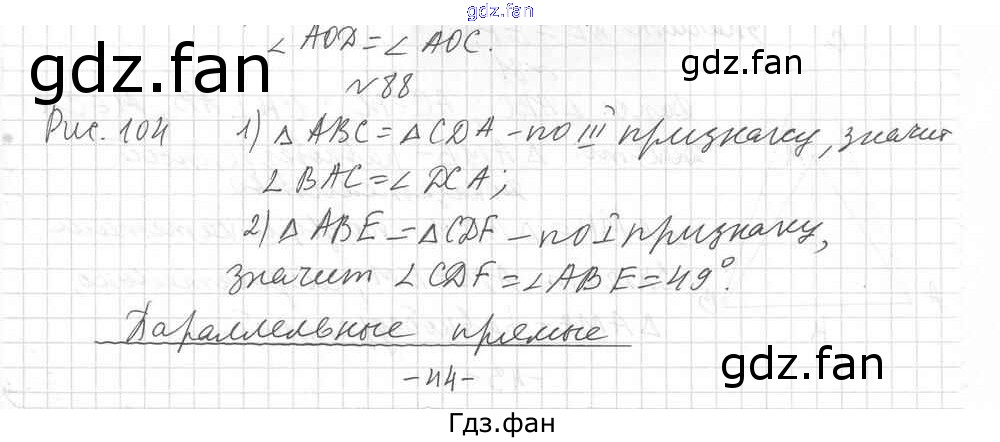 gdz.fan
∠ AOD = ∠ AOC.
gdz.fan
gdz.fan
№ 88
Рис. 104 1) △ ABC = △ CDA – по III признаку, значит
∠ BAC = ∠ DCA;
2) △ ABE = △ CDF – по I признаку,
значит ∠ CDF = ∠ ABE = 49°.
Параллельные прямые
gdz.fan
- 44 -
Гдз.фан